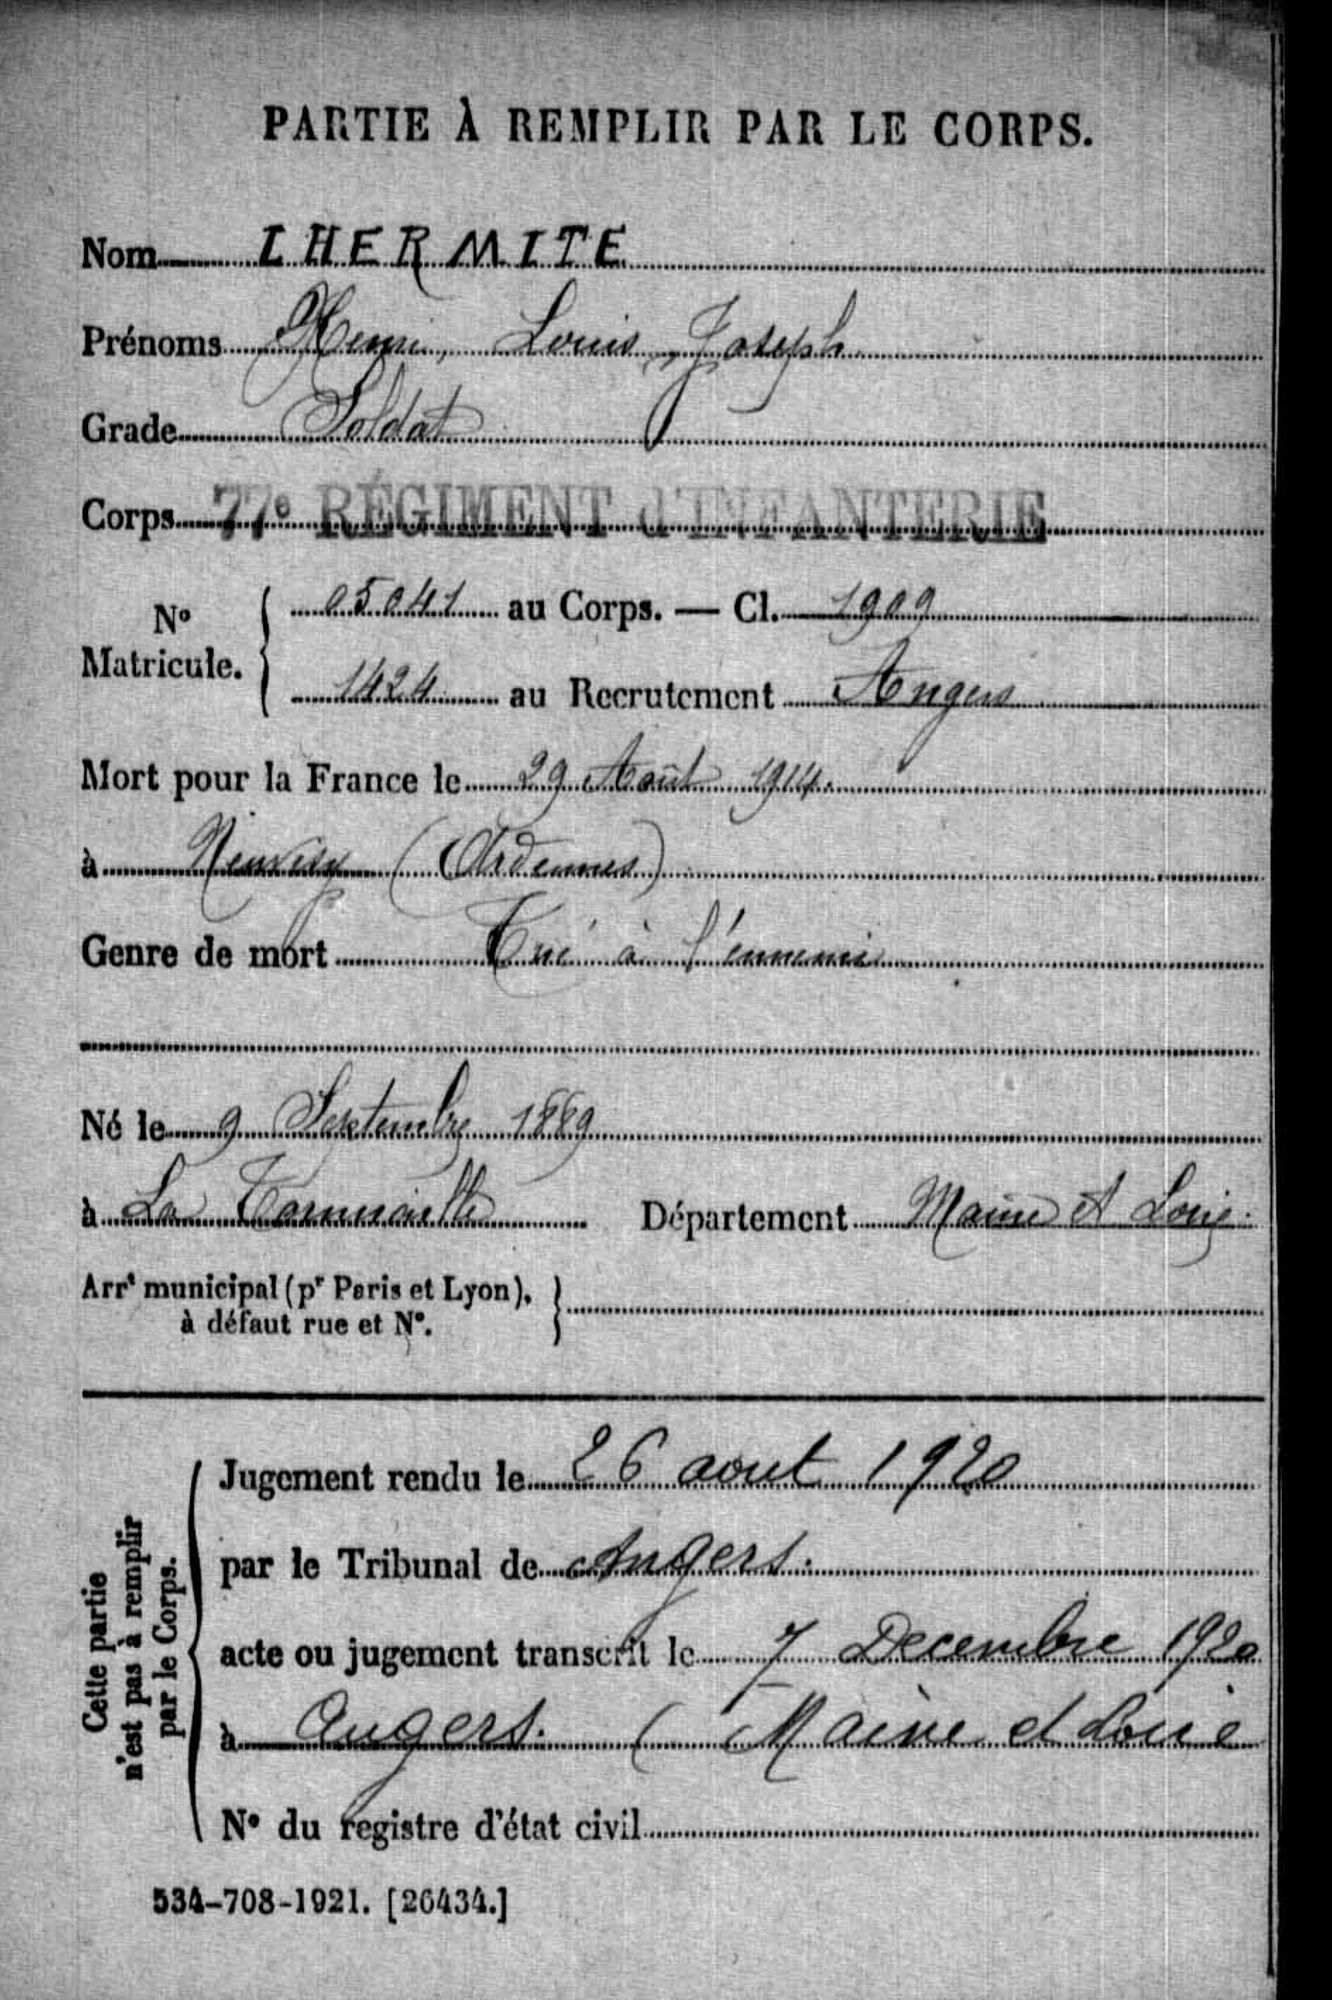 PARTIE À REMPLIR PAR LE CORPS.
Nom LHERMITE
Prénoms Henri, Louis, Joseph
Grade Soldat
Corps 77e RÉGIMENT d'INFANTERIE
No Matricule. { 05041 au Corps. — Cl. 1909
1424 au Recrutement Angers
Mort pour la France le 29 Août 1914.
à Neuvizy (Ardennes)
Genre de mort Tué à l'ennemi
Né le 9 Septembre 1889
à La Cornuaille Département Maine et Loire.
Arrt municipal (pr Paris et Lyon), }
à défaut rue et No.
Cette partie
n'est pas à remplir
par le Corps.
Jugement rendu le 26 aout 1920
par le Tribunal de Angers.
acte ou jugement transcrit le 7 Decembre 1920
à Angers. (Maine et Loire
No du registre d'état civil
534-708-1921. [26434.]